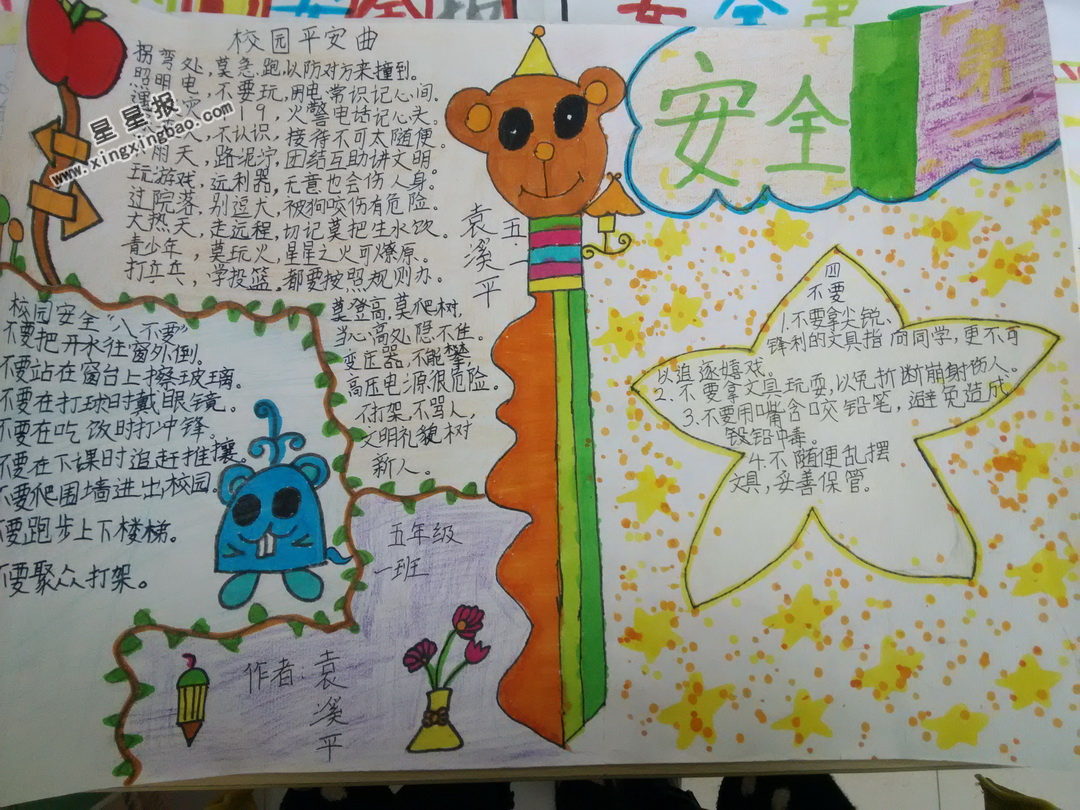 安全第一
校园平安曲
拐弯处，莫急跑，以防对方来撞到。
照明电，不要玩，用电常识记心间。
119，火警电话记心头。
不认识，接待不可太随便
雨天，路泥泞，团结互助讲文明
玩游戏，远利器，无意也会伤人身。
过院落，别逗犬，被狗咬伤有危险。
大热天，走远程，切记莫把生水饮。
青少年，莫玩火，星星之火可燎原。
打乒乓，学投篮。都要按照规则办。
莫登高，莫爬树，
当心高处，隐不住。
变压器，不能攀，
高压电源很危险。
不打架，不骂人，
文明礼貌树
新人。
星星报
www.xingxingbao.com
五一
袁溪平
校园安全"八不要"
不要把开水往窗外倒。
不要站在窗台上擦玻璃。
不要在打球时戴眼镜。
不要在吃饭时打冲锋。
不要在下课时追赶推攘。
不要爬围墙进出校园。
不要跑步上下楼梯。
不要聚众打架。
五年级
一班
作者：袁溪平
四
不要
1.不要拿尖锐、
锋利的文具指向同学，更不可
以追逐嬉戏。
2.不要拿文具玩耍，以免折断崩射伤人。
3.不要用嘴含咬铅笔，避免造成
铅中毒。
4.不随便乱摆
文具，妥善保管。